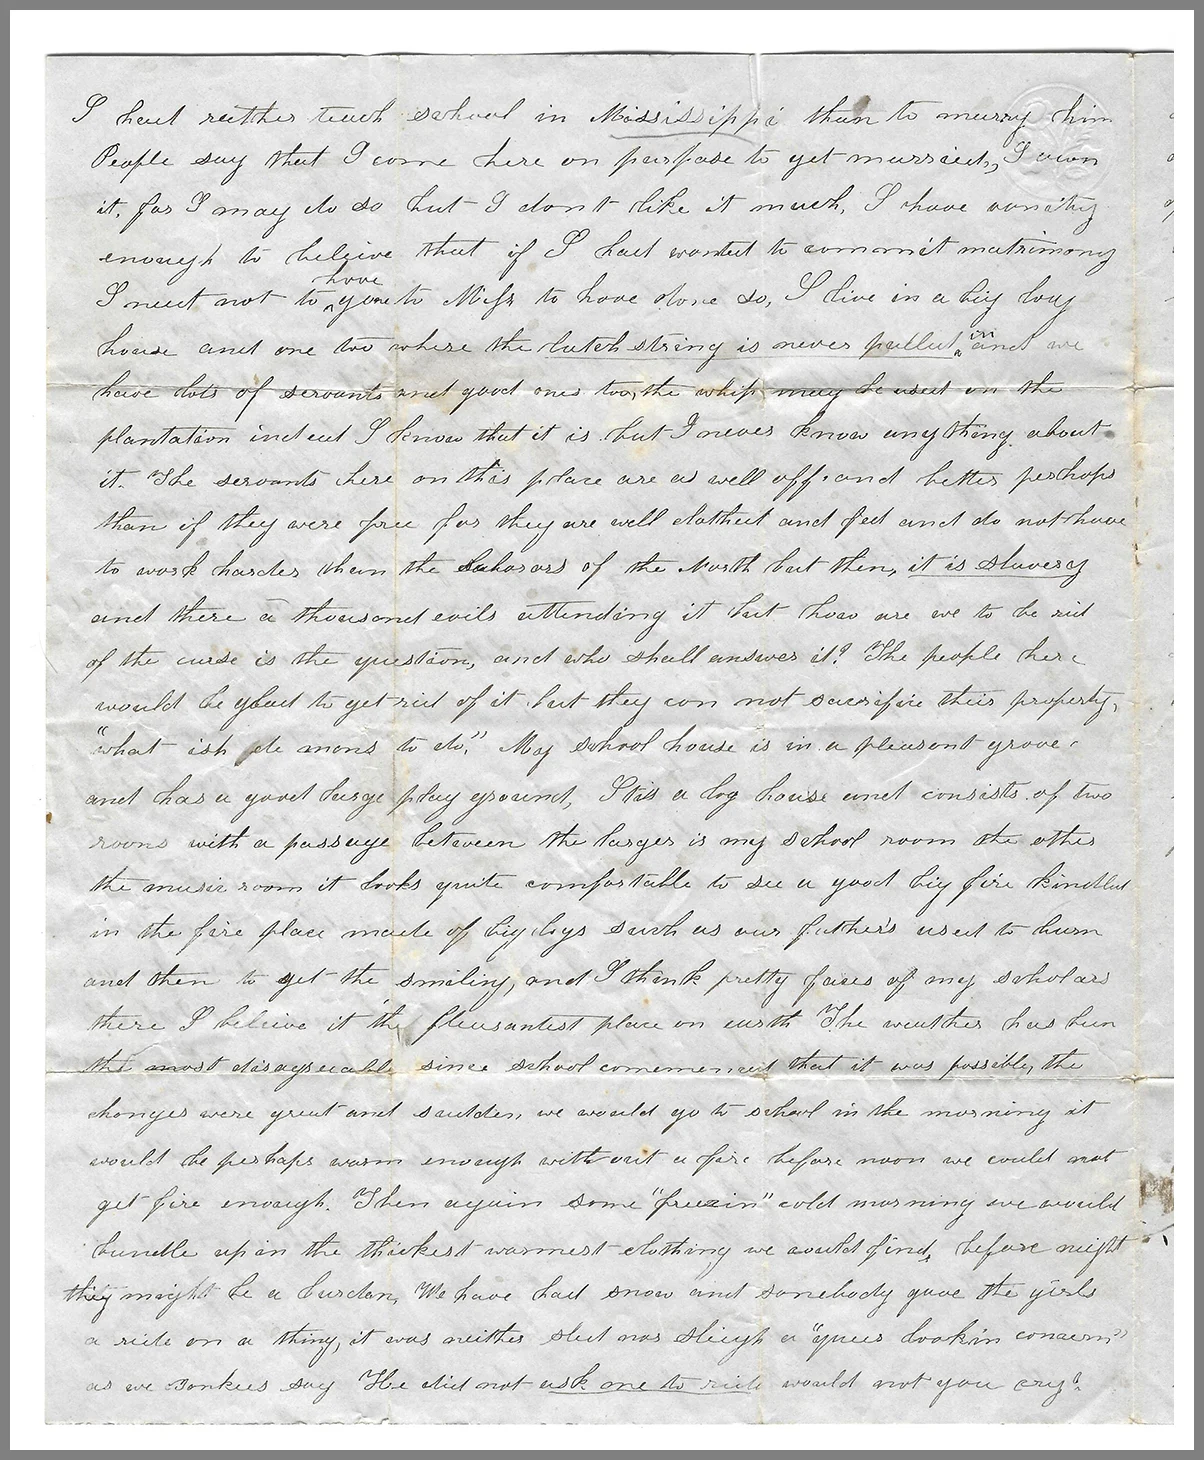 I had reather teach school in Mississippi than to marry him
People say that I come here on purpose to get married, I own
it, for I may do so but I dont like it much, I have vanity
enough to beleive that if I had wanted to commit matrimony
have
I need not to gone to Miss to have done so, I live in a big log
house and one too where the latch string is never pulled in and we
have lots of servants and good ones too, the whip may be used on the
plantation indeed I know that it is but I never know any thing about
it. The servants here on this place are as well off and better perhaps
than if they were free for they are well clothed and fed and do not have
to work harder than the laborors of the North but then, it is slavery
and there a thousand evils attending it but how are we to be rid
of the curse is the question, and who shall answer it? The people here
would be glad to get rid of it but they can not sacrifice their property,
"what ish de mons to do." My school house is in a pleasant grove
and has a good large play ground, Itis a log house and consists of two
rooms with a passage between the larger is my school room the other
the music room it looks quite comfortable to see a good big fire kindled
in the fire place made of big logs such as our father's used to burn
and then to get the smiling, and I think pretty faces of my scholars
there I beleive it the pleasantest place on earth The weather has been
the most disagreeable since school commenced that it was possible, the
changes were great and sudden, we would go to school in the morning it
would be perhaps warm enough with out a fire before noon we could not
get fire enough. Then again some "freezin" cold morning we would
bundle up in the thickest warmest clothing we could find, before night
they might be a burden, We have had snow and somebody gave the girls
a ride on a thing, it was neither sled nor sleigh a "queer lookin concern"
as we Yankees say He did not ask me to ride would not you cry?